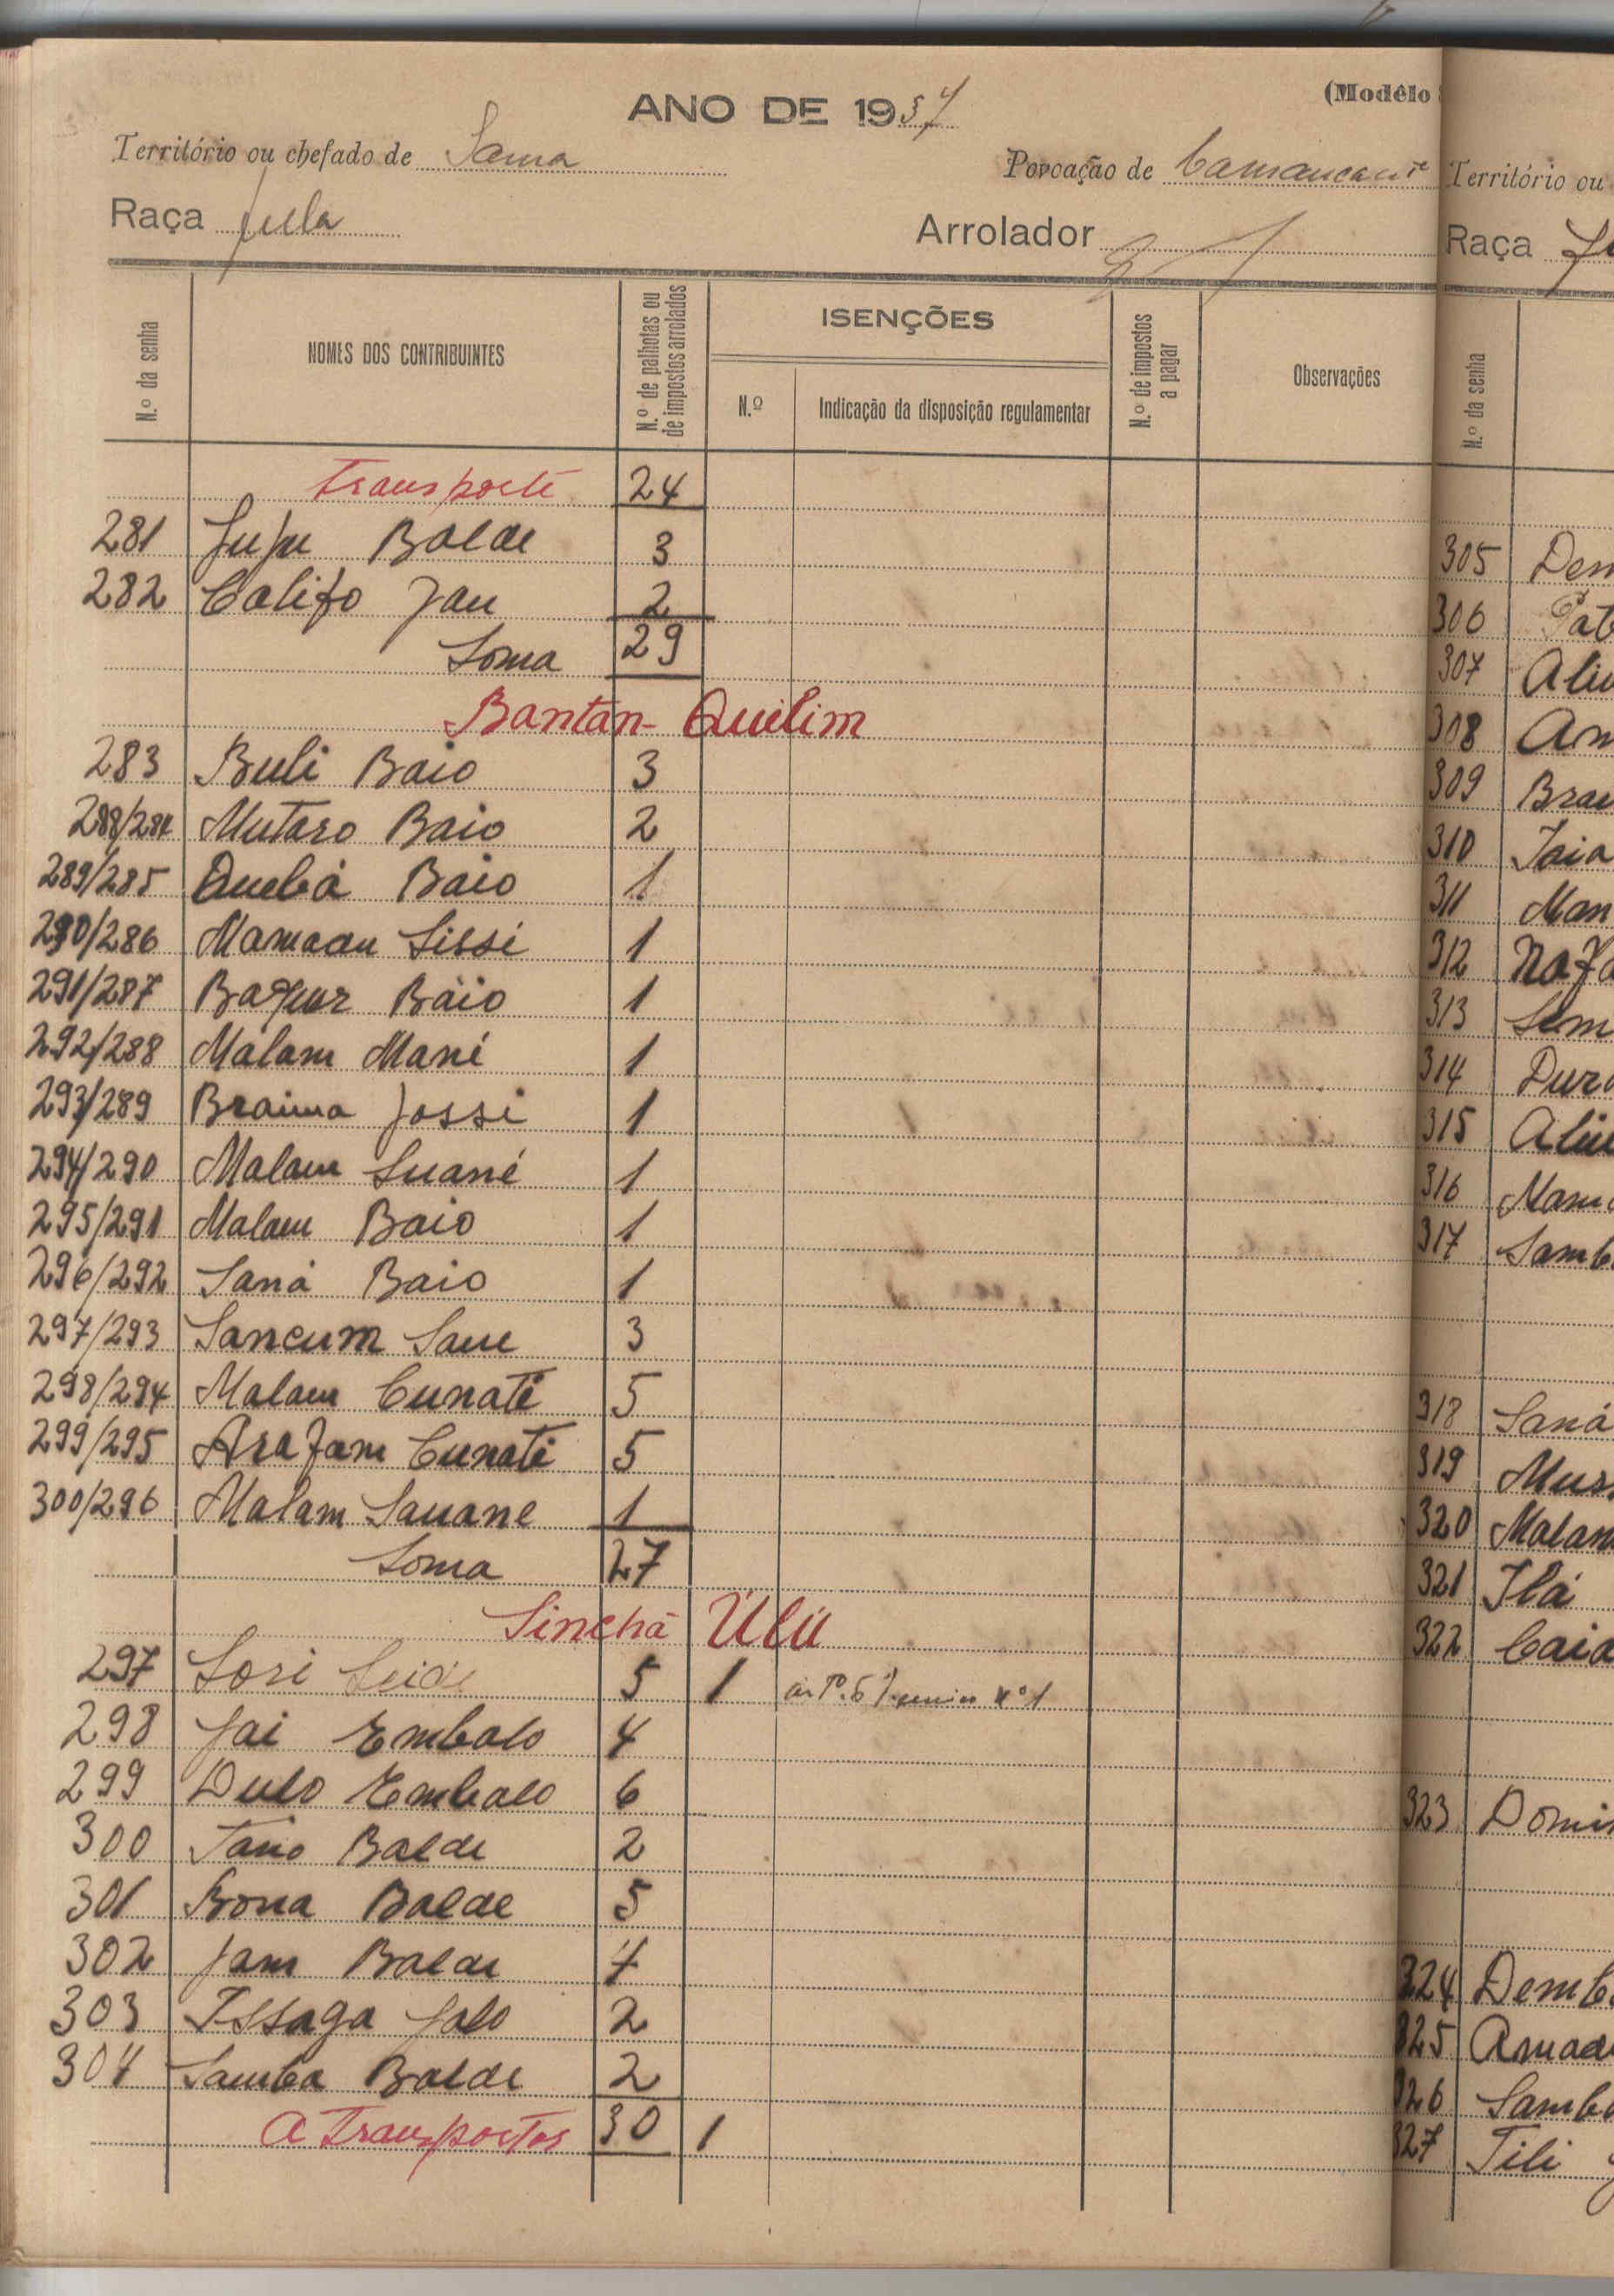 (Modêlo
ANO DE 1954
Território ou chefado de Sama
Povoação de
Raça fula
Arrolador
N.º da senha
NOMES DOS CONTRIBUINTES
N.º de palhotas ou de impostos arrolados
ISENÇÕES
N.º
Indicação da disposição regulamentar
N.º de impostos a pagar
Observações
Transporte 24
281 Balde 3
282 Califo Jau 2
Soma 29
Bantan-Quelim
283 Buli Baio 3
288/284 Mutaro Baio 2
289/285 Quebá Baio 1
290/286 Mamadu Sissé 1
291/287 Baio 1
292/288 Malam Mané 1
293/289 Braima Jossi 1
294/290 Malam Suané 1
295/291 Malam Baio 1
296/292 Saná Baio 1
297/293 Sancum 3
298/294 Malam Cunaté 5
299/295 Arafam Cunaté 5
300/296 Malam Sauane 1
Soma 27
Sinchã Úlú
297 Lori Seidi 5 1 nº 1
298 Jai Embalo 4
299 Dulo Embalo 6
300 Balde 2
301 Balde 5
302 Jam Balde 4
303 Issaga Jalo 2
304 Samba Balde 2
A Transportar 30 1
Território ou
Raça
N.º da senha
305 Dem
306 Pat
307 Aliu
308 Am
309 Brai
310
311 Man
312
313
314
315 Aliu
316 Mam
317 Samb
318 Saná
319 Mus
320 Malam
321
322
323 Domi
324 Demb
325 Amad
326 Samb
327 Tili